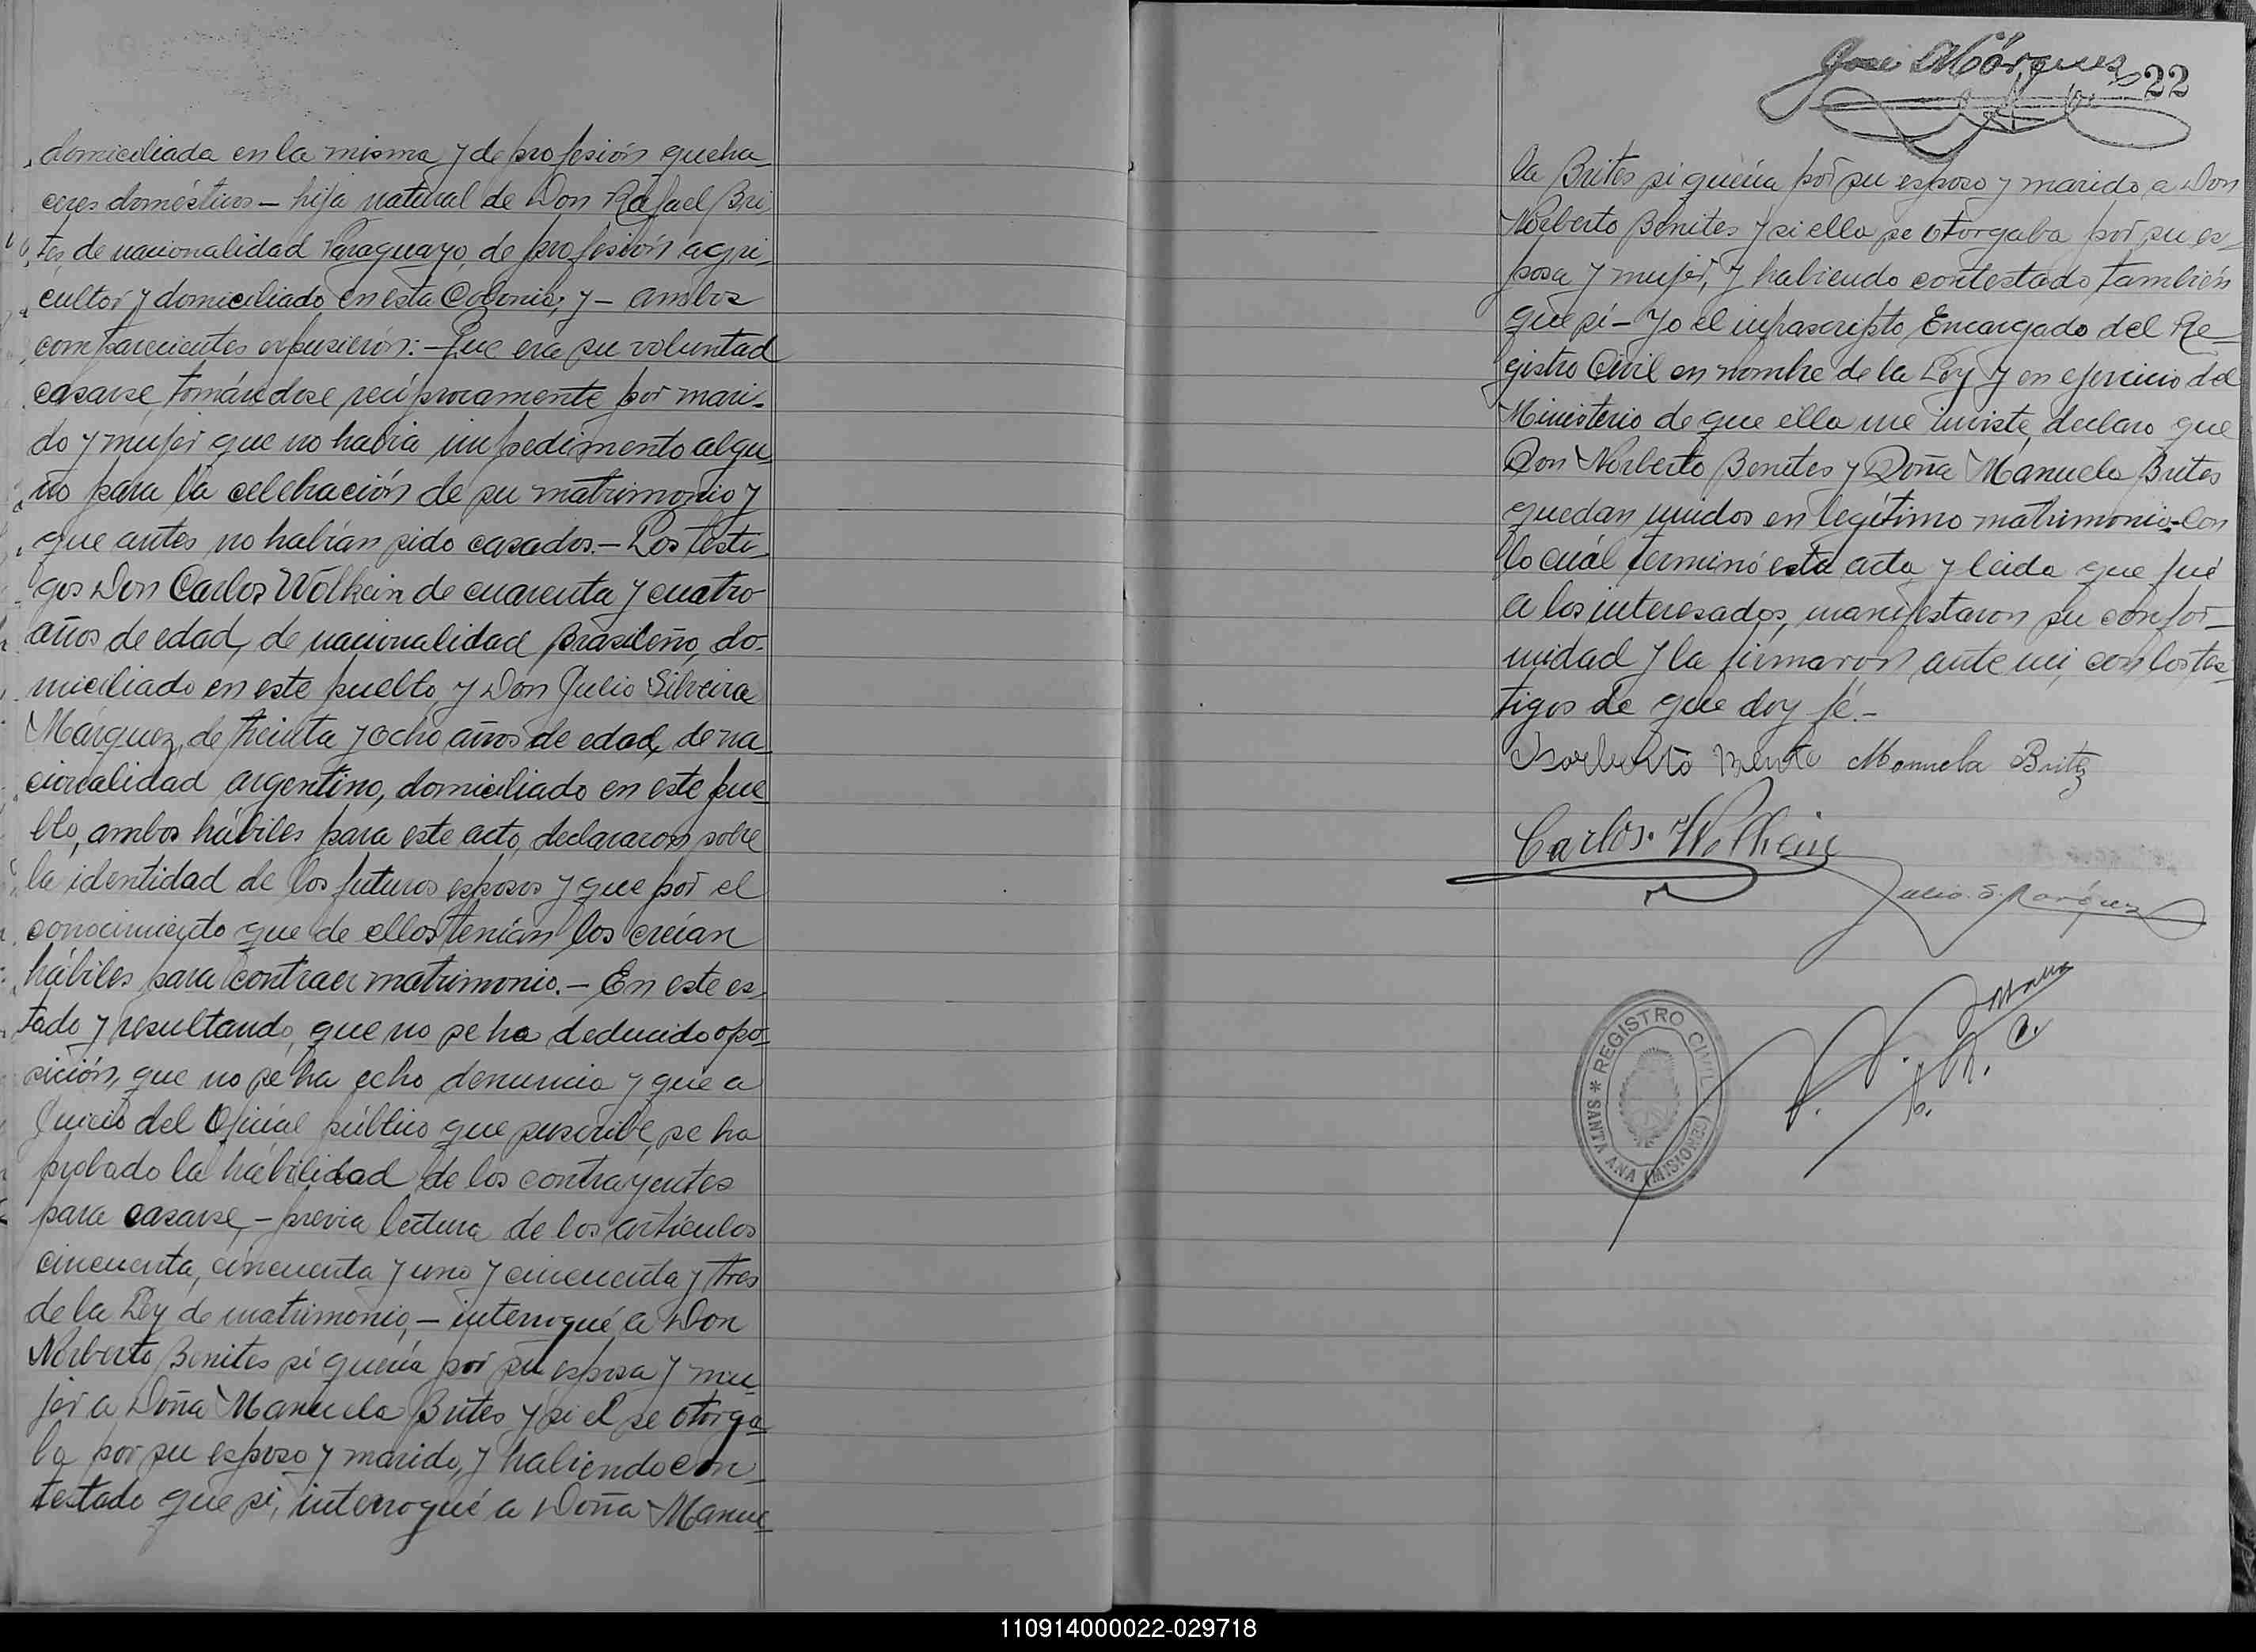 domiciliada en la misma y de profesión queha-
ceres domésticos - hija natural de Don Rafael Bri-
tes, de nacionalidad Paraguayo, de profesión agri-
cultor y domiciliado en esta Colonia, y - ambos
comparecientes expusieron: - Que era su voluntad
casarse, tomándose recíprocamente por mari-
do y mujer que no había impedimento algu-
no para la celebración de su matrimonio y
que antes no habían sido casados. - Los testi-
gos Don Carlos Wolhein de cuarenta y cuatro
años de edad, de nacionalidad brasileño, do-
miciliado en este pueblo, y Don Julio Silveira
Márquez, de treinta y ocho años de edad, de na-
cionalidad argentino, domiciliado en este pue-
blo, ambos hábiles para este acto, declararon sobre
la identidad de los futuros esposos y que por el
conocimiento que de ellos tenían los creían
hábiles para contraer matrimonio. - En este es-
tado y resultando, que no se ha deducido opo-
sición, que no se ha echo denuncia y que a
juicio del Oficial público que suscribe, se ha
probado la habilidad de los contrayentes
para casarse, - previa lectura de los artículos
cincuenta, cincuenta y uno y cincuenta y tres
de la Ley de matrimonio, - interrogué a Don
Norberto Benites si quería por su esposa y mu-
jer a Doña Manuela Brites y si el se otorga-
ba por su esposo y marido, y habiendo con-
testado que si, interrogué a Doña Manue-
José Márquez
22
la Brites si quería por su esposo y marido a Don
Norberto Benites y si ella se otorgaba por su es-
posa y mujer, y habiendo contestado también
que si - Yo el infrascripto Encargado del Re-
gistro Civil en nombre de la Ley y en ejercicio del
Ministerio de que ella me inviste, declaro que
Don Norberto Benites y Doña Manuela Brites
quedan unidos en legítimo matrimonio - Con
lo cuál terminó esta acta y leida que fué
a los interesados, manifestaron su confor-
midad y la firmaron ante mi, con los tes-
tigos de que doy fé. -
Norberto Benite Manuela Britez
Carlos. Wolhein
Julio. S. Márquez
REGISTRO CIVIL
* SANTA ANA (MISIONES)
110914000022-029718